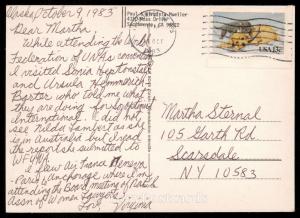 Alaska October 9, 1983
Dear Martha,
While attending the World
Federation of UNAs convention
I visited Sonia Heptonstall
and Ursula Hemmerich
Barter who told me what
they are doing for Soroptimist
International. I did not
see Hilda
in Australia but I read
the report she submitted to
WFUNA.
I flew Air France
Paris Anchorage where I'm
attending the Board meeting of Natl
Assn of Women
Love, Virginia
Paul & Virginia Mueller
4120 Moss Drive
Sacramento, CA 95822
OCT
1983
USA 13c
Martha Sternal
105 Garth Rd.
Scarsdale
NY 10583